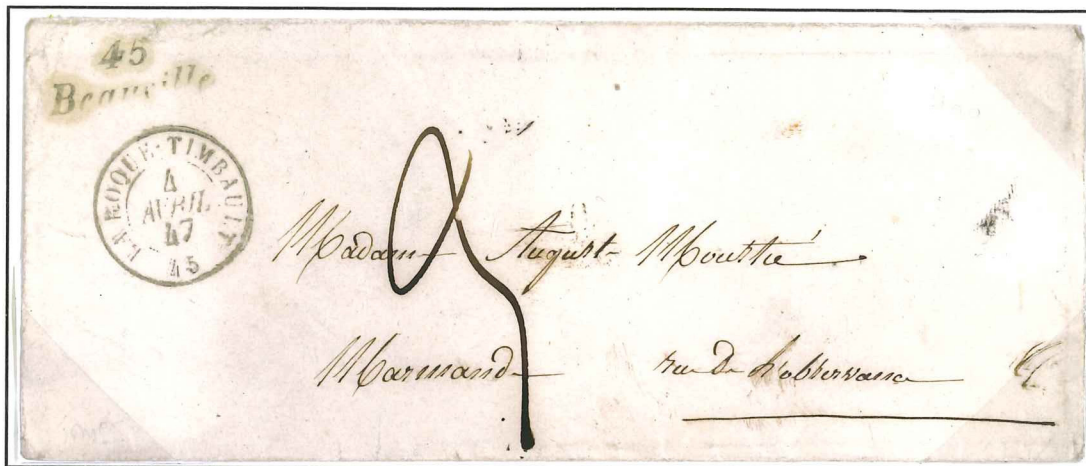 45
Beauville
LA ROQUE-TIMBAULT
4
AVRIL
47
45
Madame Auguste Moustié
Marmande rue de L'observance